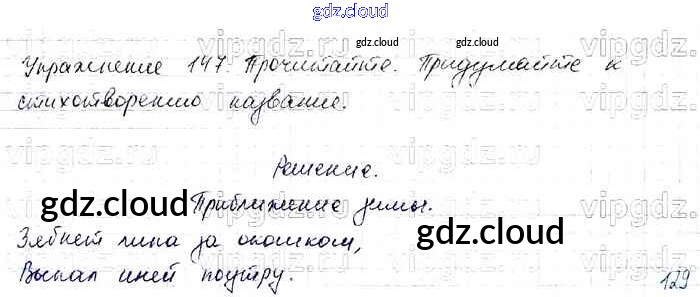 gdz.cloud
gdz.cloud gdz.cloud
Упражнение 147. Прочитайте. Придумайте к
стихотворению название.
vipgdz.ru
Решение.
gdz.cloud
Приближение зимы.
Зябнет липа за окошком,
gdz.cloud
Выпал иней поутру.
129